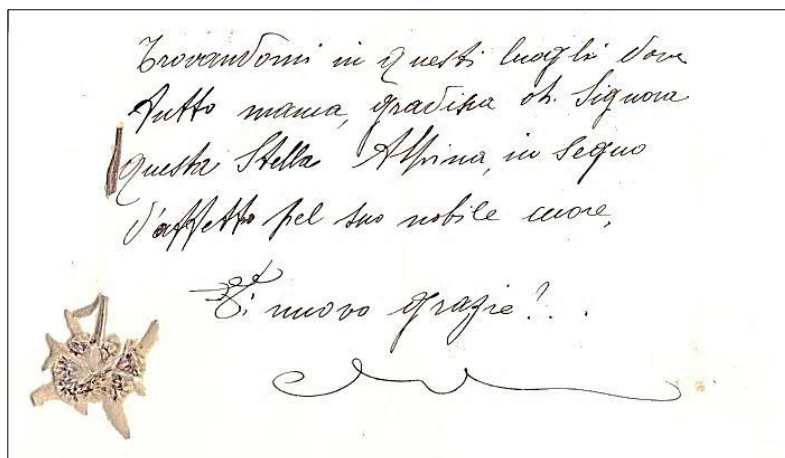 Trovandomi in questi luoghi dove
tutto manca, gradisca oh. Signora
questa Stella Alpina, in segno
d'affetto pel suo nobile cuore,
Di nuovo grazie!..